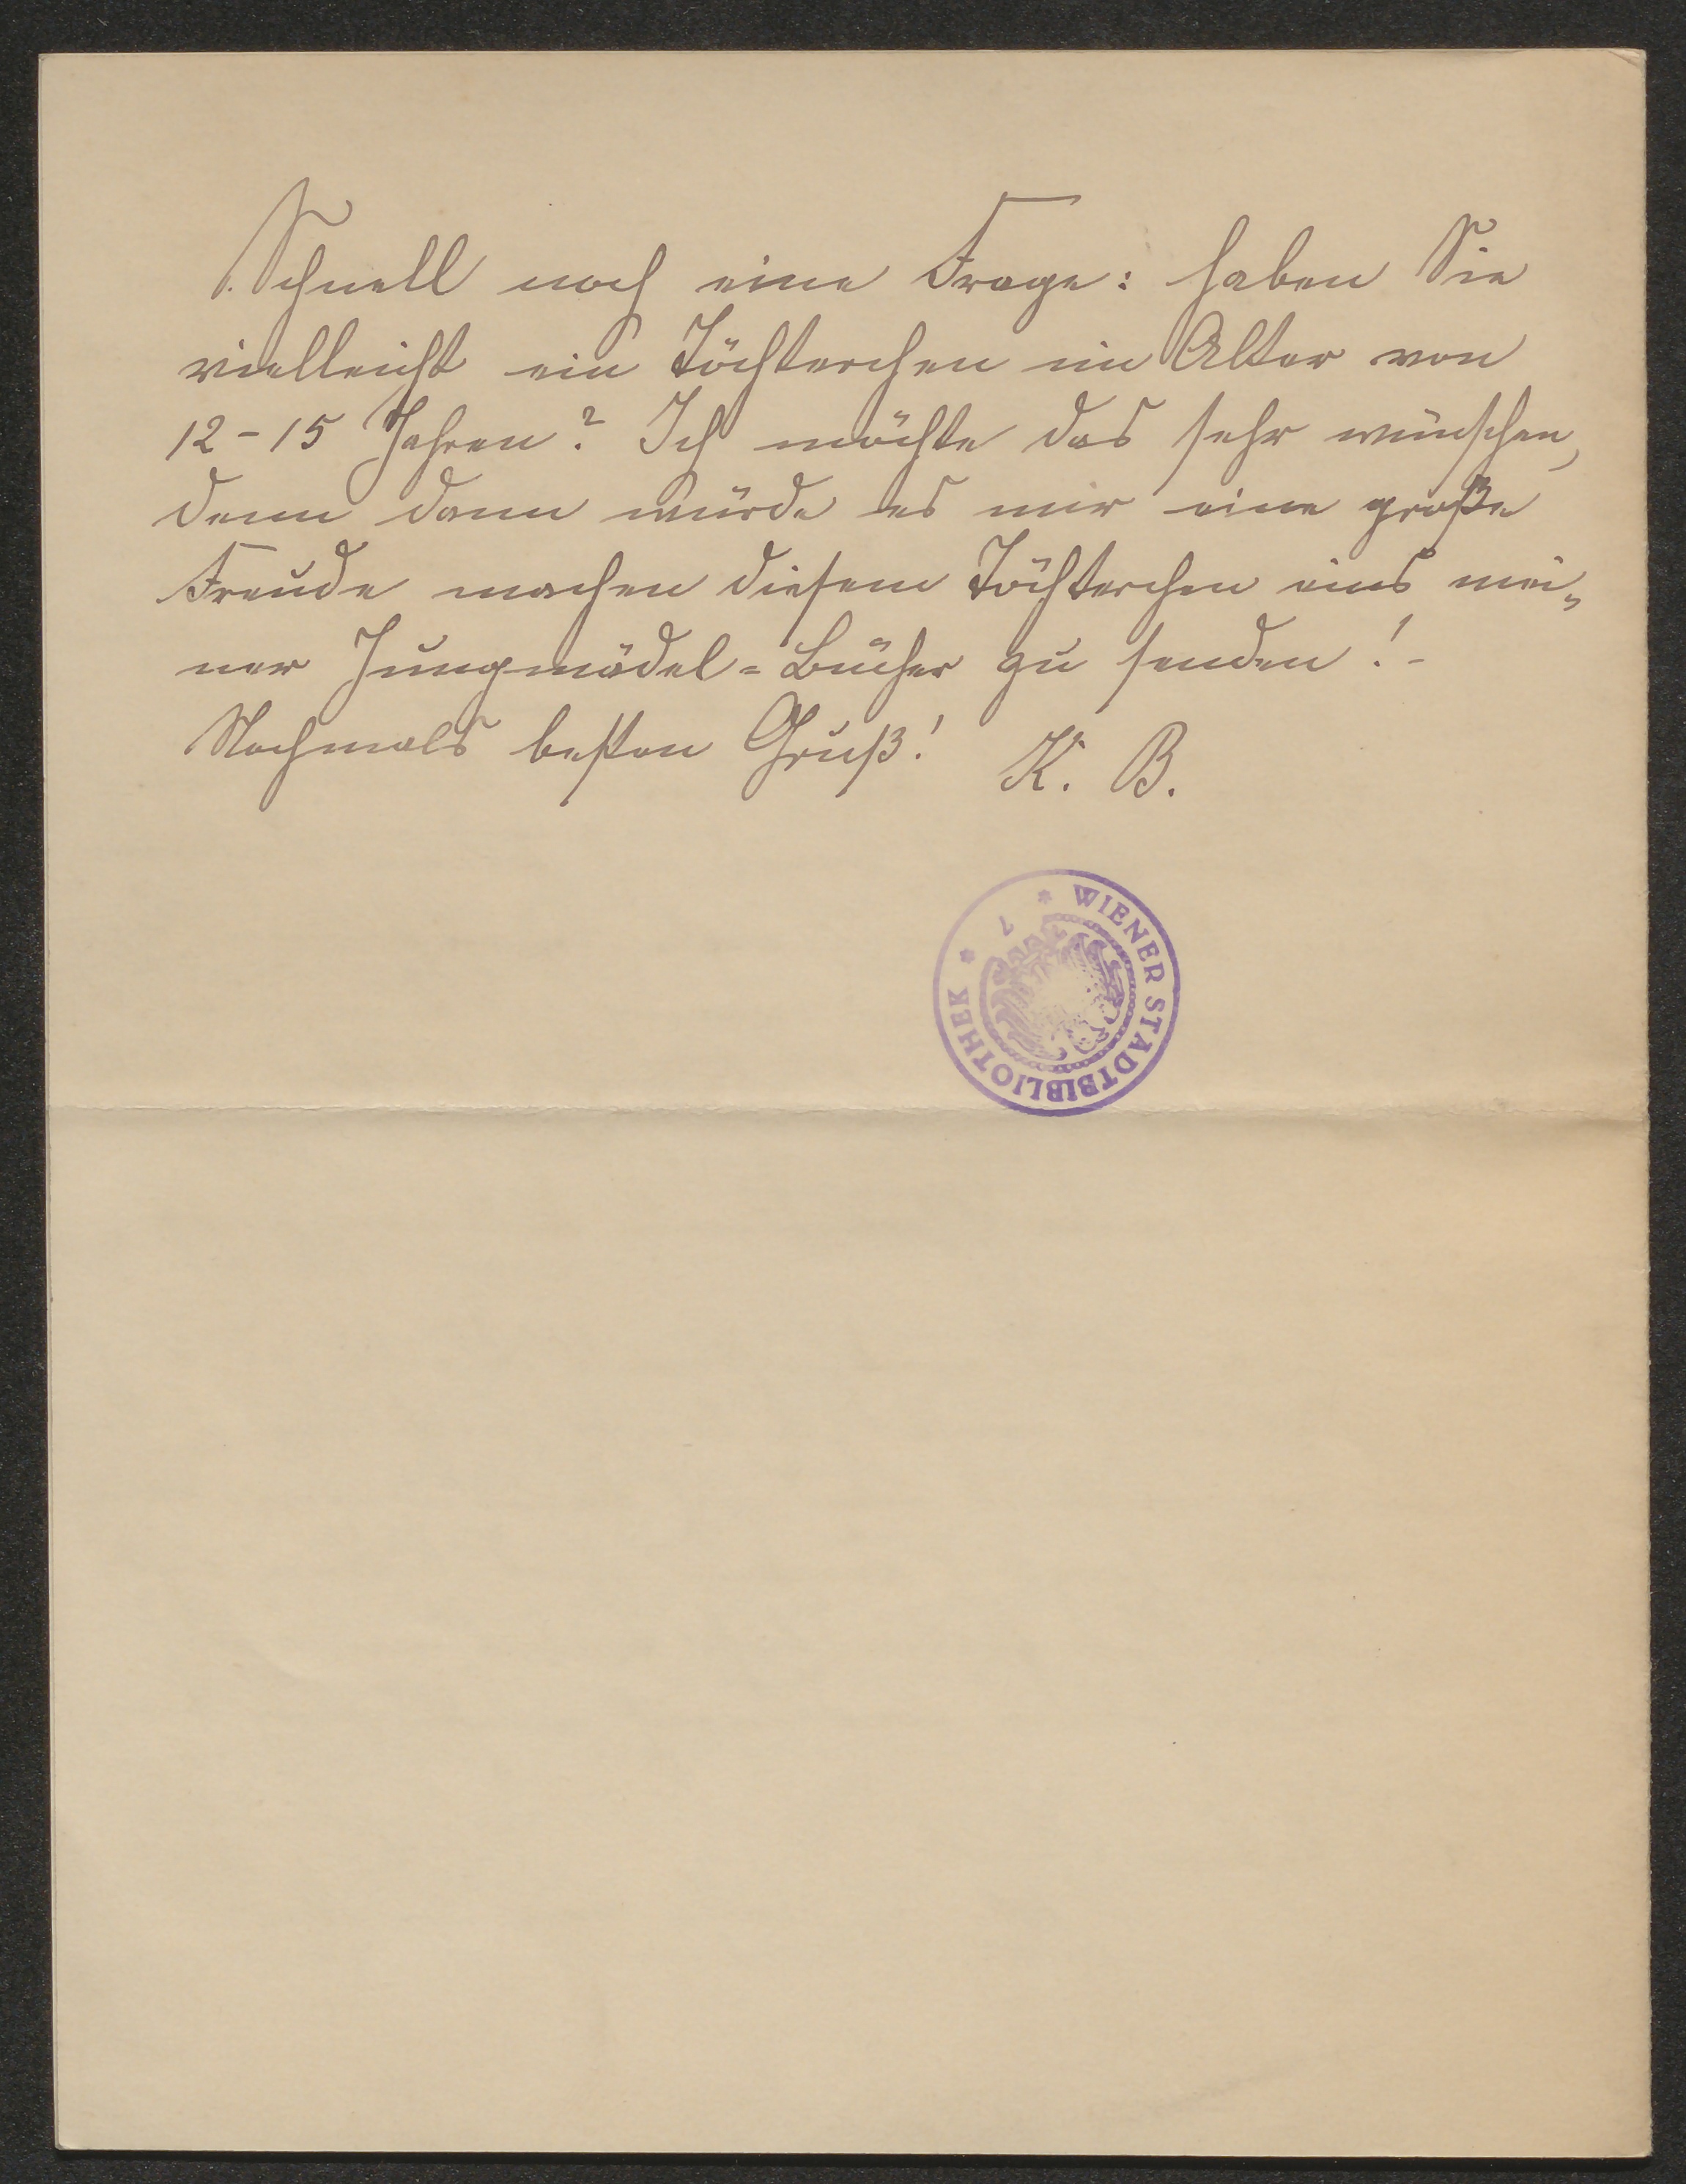 Schnell noch eine Frage: haben Sie
vielleicht ein Töchterchen im Alter von
12-15 Jahren? Ich möchte das sehr wünschen,
denn dann würde es mir eine große
Freude machen diesem Töchterchen eins mei„
ner Jungmädel=Bücher zu senden! -
Nochmals besten Gruß! K. B.
* WIENER STADTBIBLIOTHEK * 7